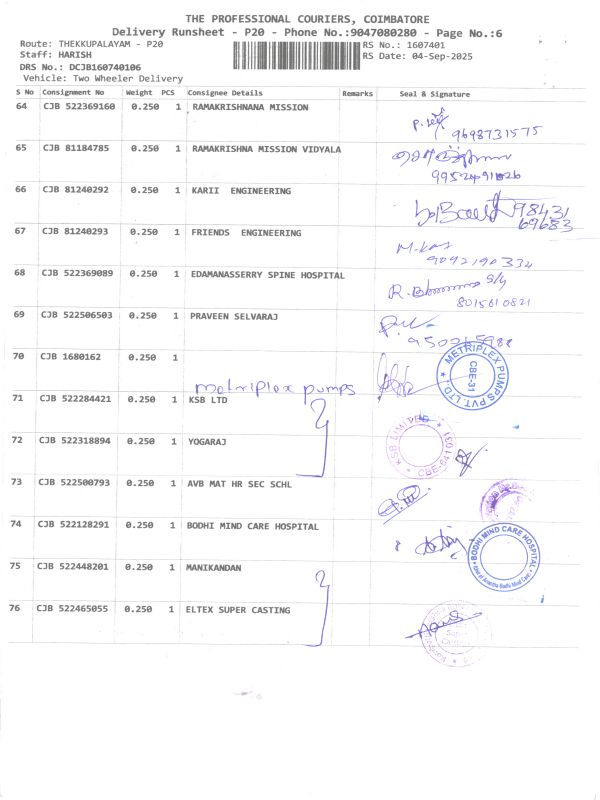 THE PROFESSIONAL COURIERS, COIMBATORE
Delivery Runsheet - P20 - Phone No.:9047080280 - Page No.:6
Route: THEKKUPALAYAM - P20
RS No.: 1607401
Staff: HARISH
RS Date: 04-Sep-2025
DRS No.: DCJB160740106
Vehicle: Two Wheeler Delivery
S No Consignment No Weight PCS Consignee Details Remarks Seal & Signature
64 CJB 522369160 0.250 1 RAMAKRISHNANA MISSION
9698731575
65 CJB 81184785 0.250 1 RAMAKRISHNA MISSION VIDYALA
9952491826
66 CJB 81240292 0.250 1 KARII ENGINEERING
98431
69683
67 CJB 81240293 0.250 1 FRIENDS ENGINEERING
9092190334
68 CJB 522369089 0.250 1 EDAMANASSERRY SPINE HOSPITAL
8015610821
69 CJB 522506503 0.250 1 PRAVEEN SELVARAJ
70 CJB 1680162 0.250 1
metriplex pumps
METRIPLEX PUMPS PVT. LTD. CBE-31
71 CJB 522284421 0.250 1 KSB LTD
KSB LIMITED
72 CJB 522318894 0.250 1 YOGARAJ
73 CJB 522500793 0.250 1 AVB MAT HR SEC SCHL
74 CJB 522128291 0.250 1 BODHI MIND CARE HOSPITAL
BODHI MIND CARE HOSPITAL
75 CJB 522448201 0.250 1 MANIKANDAN
76 CJB 522465055 0.250 1 ELTEX SUPER CASTING